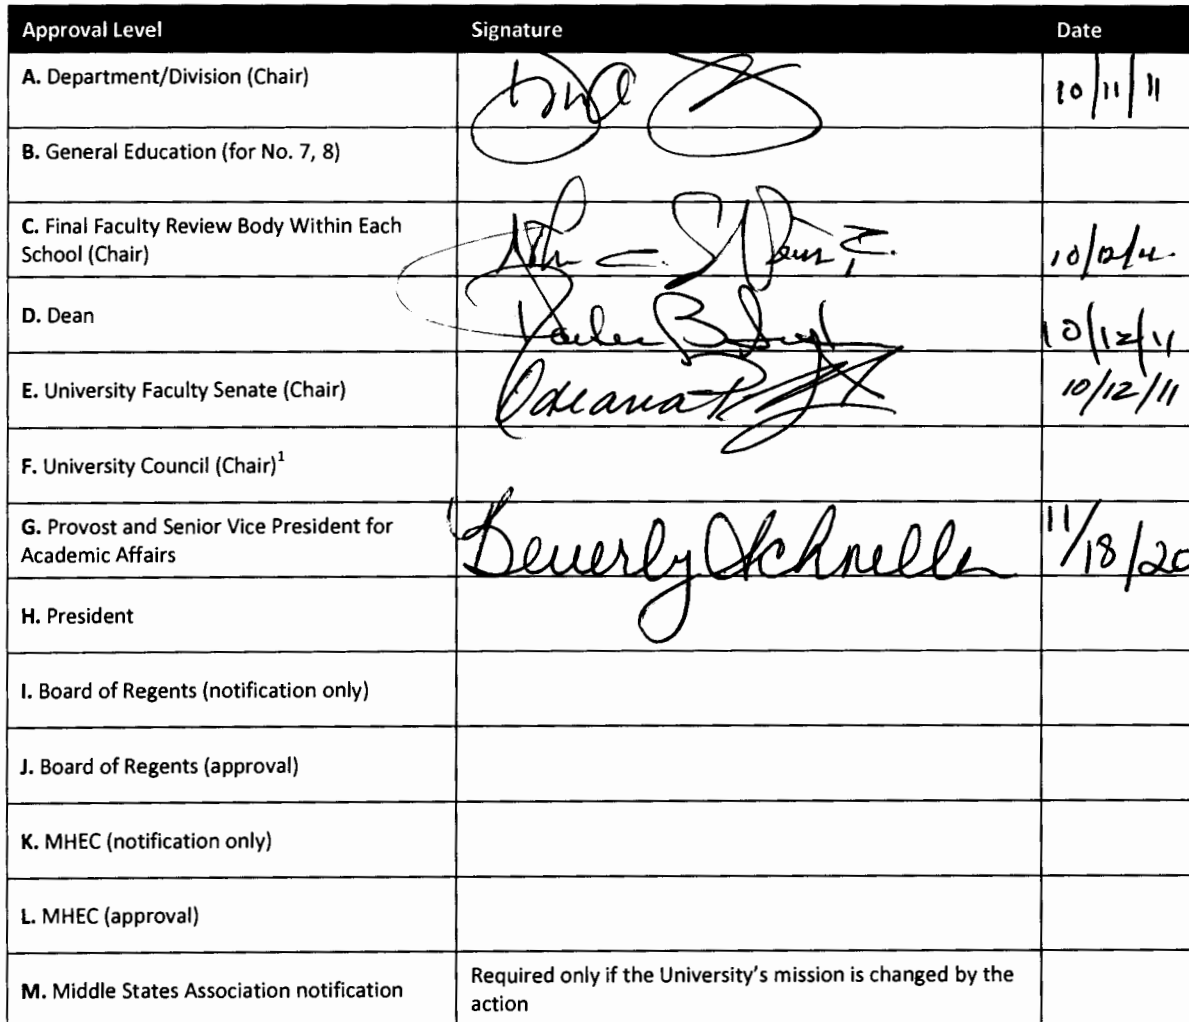 Approval Level Signature Date
A. Department/Division (Chair) 10/11/11
B. General Education (for No. 7, 8)
C. Final Faculty Review Body Within Each
School (Chair)
D. Dean 10/12/11
E. University Faculty Senate (Chair) 10/12/11
F. University Council (Chair)¹
G. Provost and Senior Vice President for
Academic Affairs Beverly Schneller 11/18/20
H. President
I. Board of Regents (notification only)
J. Board of Regents (approval)
K. MHEC (notification only)
L. MHEC (approval)
M. Middle States Association notification Required only if the University's mission is changed by the
action